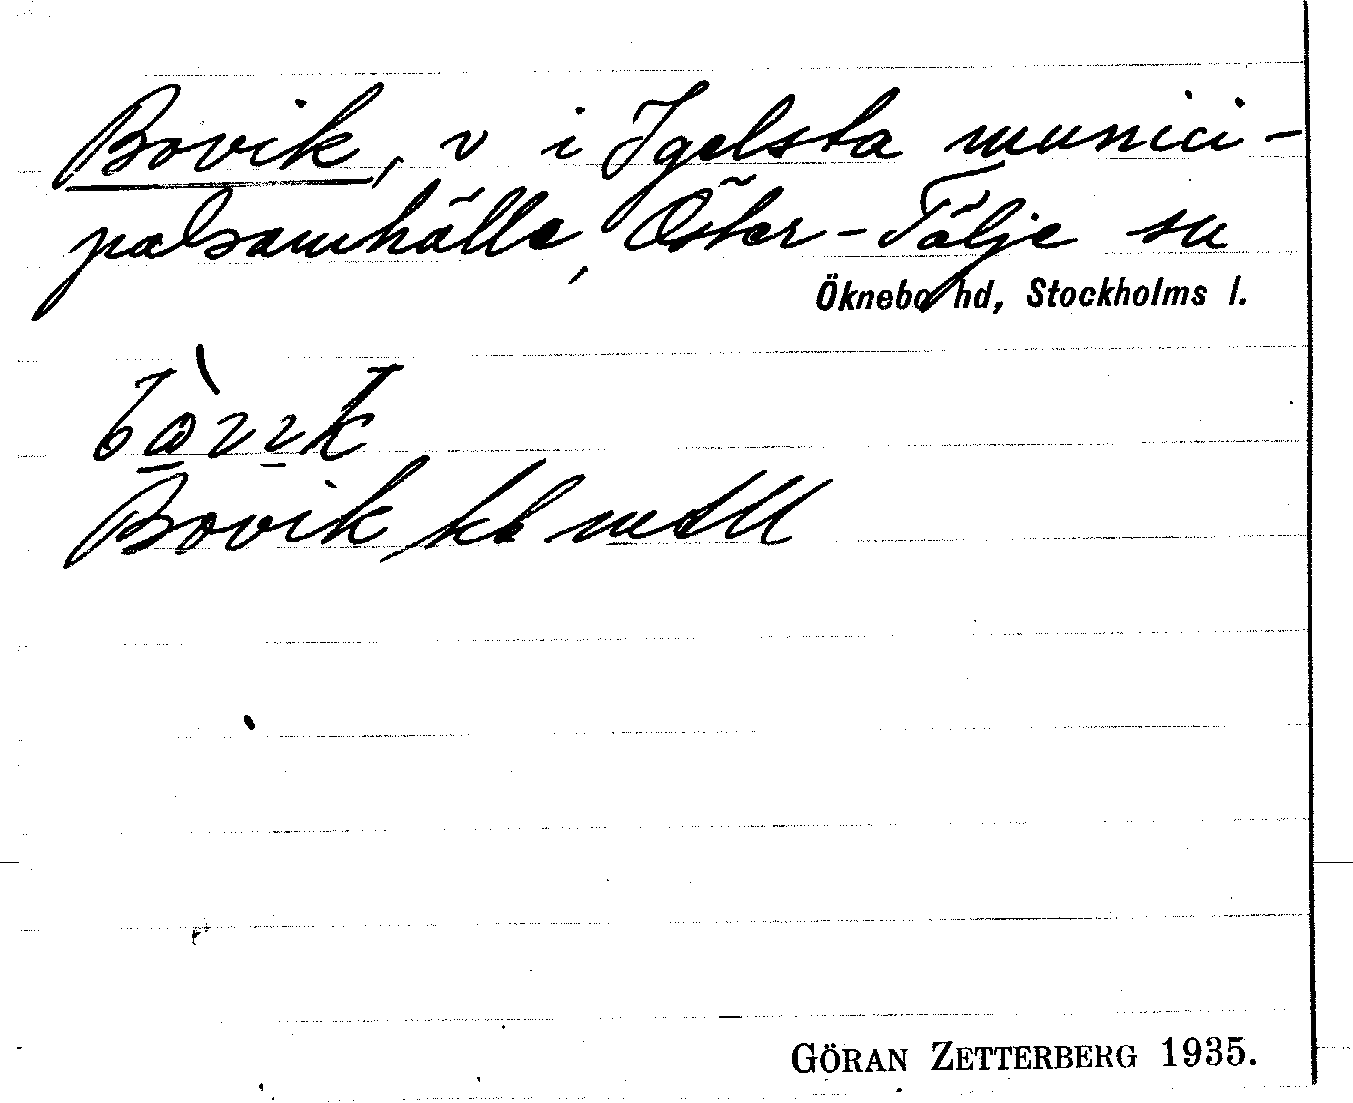 Bovik, v i Igelsta munici-
palsamhälle, Öster-Tälje sn
Öknebo hd, Stockholms l.
Bovik
GÖRAN ZETTERBERG 1935.